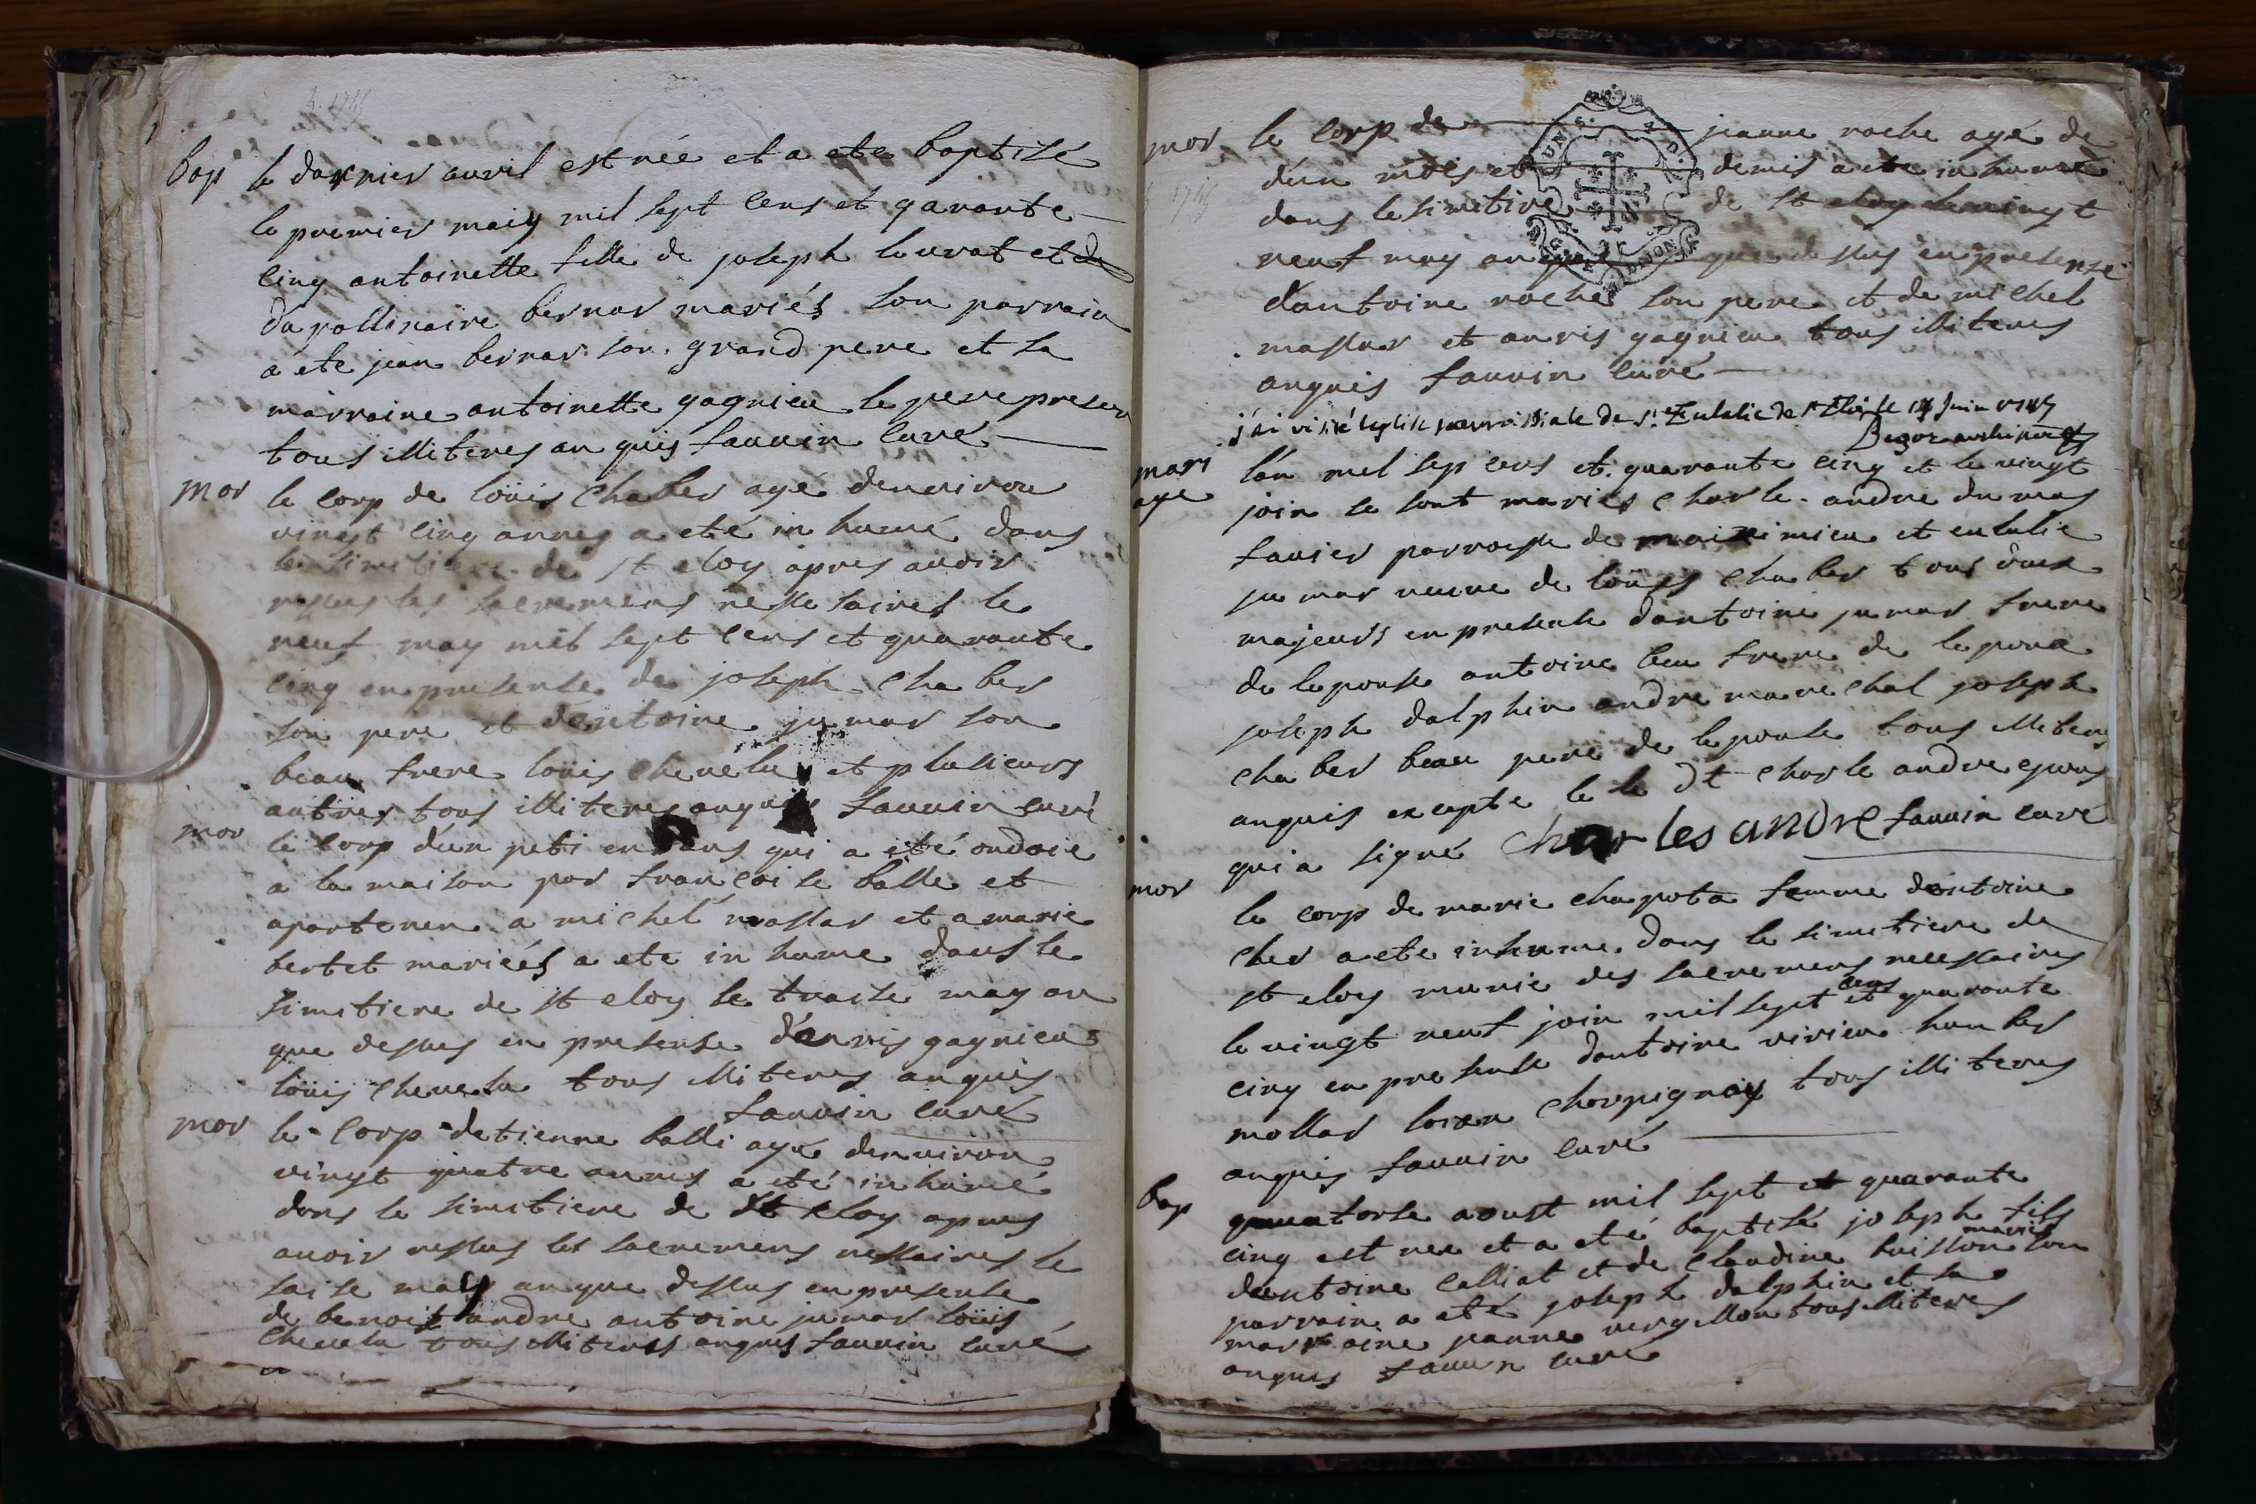 bap le darnier auril est née et a ete baptisé
le premier maiy mil sept cens et qarante
cinq antoinette fille de joseph louvat et de
dapollinaire bernar mariés son parrain
a ete jean bernar son grand pere et sa
marraine antoinette gagnieu le pere presen
tous illiteres an quis fauuin curé
mor le corp de loüis chaber agé denuiron
vingt cinq annes a eté in humé dans
le simitiere de st eloy apres auoir
ressus les sacremens nessesaires le
neuf may mil sept cens et quarante
cinq en presense de joseph chaber
son pere et dantoine jumar son
beau frere loüis cheuelu et plusieurs
autres tous illiteres anquis fauuin curé
mor le corp d'un peti enfans qui a eté ondoié
a la maison par francoise balli et
apartenen a michel mollar et a marie
bertet mariés a ete in hume dans le
simitiere de st eloy le traise may an
que dessus en presense d'anris gagnieu
loüis cheuelu tous illiteres anquis
fauuin curé
mor le corp detienne balli agé denuiron
vingt quatre annes a eté in humé
dans le simitiere de st eloy apres
auoir ressus les sacremens nessaires le
saise may an que dessus en presense
de benoit andre antoine jumar loüis
cheuelu tous illiteres anquis fauuin curé
mor le corp de jeanne roche agé de
d'un mois et demis a ete in humé
dans le simitire de st eloy le vingt
neuf may an que dessus en presense
d'antoine roche son pere et de michel
mollar et anris gagnieu tous illiteres
anquis fauuin curé
j'ai visité leglise parroissiale de ste Eulalie de st Eloy le 14 Juin 1745
mari l'an mil sep cens et quarante cinq et le vingt
age join se sont mariés charle andre du mas
fauier parroisse de maiximieu et eulalie
ju mar veuve de loüis chaber tous deux
majeurs en presense dantoine jumar frere
de lepouse antoine beu frere de lepoux
joseph dalphin andre marechal joseph
chaber beau pere de lepouse tous illiteres
anquis excepte le le dt charle andre epoux
qui a signé charles andre fauuin curé
mor le corp de marie chapota femme d'antoine
cher a ete inhume dans le simitiere de
st eloy munie des sacremens necessaires
le vingt neuf join mil sept cens et quarante
cinq en presense dantoine vivieu humber
mollar loren charpignay tous illiteres
anquis fauuin curé
bap quatorse aoust mil sept et quarante
cinq est nee et a eté baptisé joseph fils
dantoine calliat et de claudine buisson mariés son
parrain a eté joseph dalphin et sa
marraine jeanne vergllon tous illiteres
anquis fauuin curé